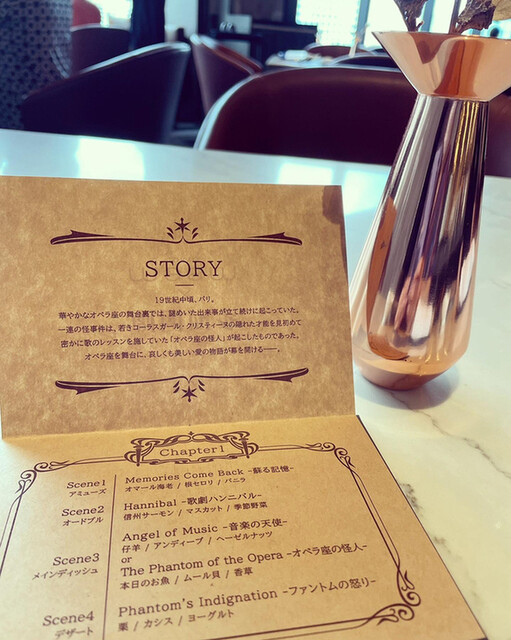 STORY
19世紀中頃、パリ。
華やかなオペラ座の舞台裏では、謎めいた出来事が立て続けに起こっていた。
一連の怪事件は、若きコーラスガール・クリスティーヌの隠れた才能を見初めて
密かに歌のレッスンを施していた「オペラ座の怪人」が起こしたものであった。
オペラ座を舞台に、哀しくも美しい愛の物語が幕を開ける――。
Chapter1
Scene1
アミューズ
Memories Come Back -蘇る記憶-
オマール海老 / 根セロリ / バニラ
Scene2
オードブル
Hannibal -歌劇ハンニバル-
信州サーモン / マスカット / 季節野菜
Scene3
メインディッシュ
Angel of Music -音楽の天使-
仔羊 / アンディーブ / ヘーゼルナッツ
or
The Phantom of the Opera -オペラ座の怪人-
本日のお魚 / ムール貝 / 香草
Scene4
デザート
Phantom's Indignation -ファントムの怒り-
栗 / カシス / ヨーグルト